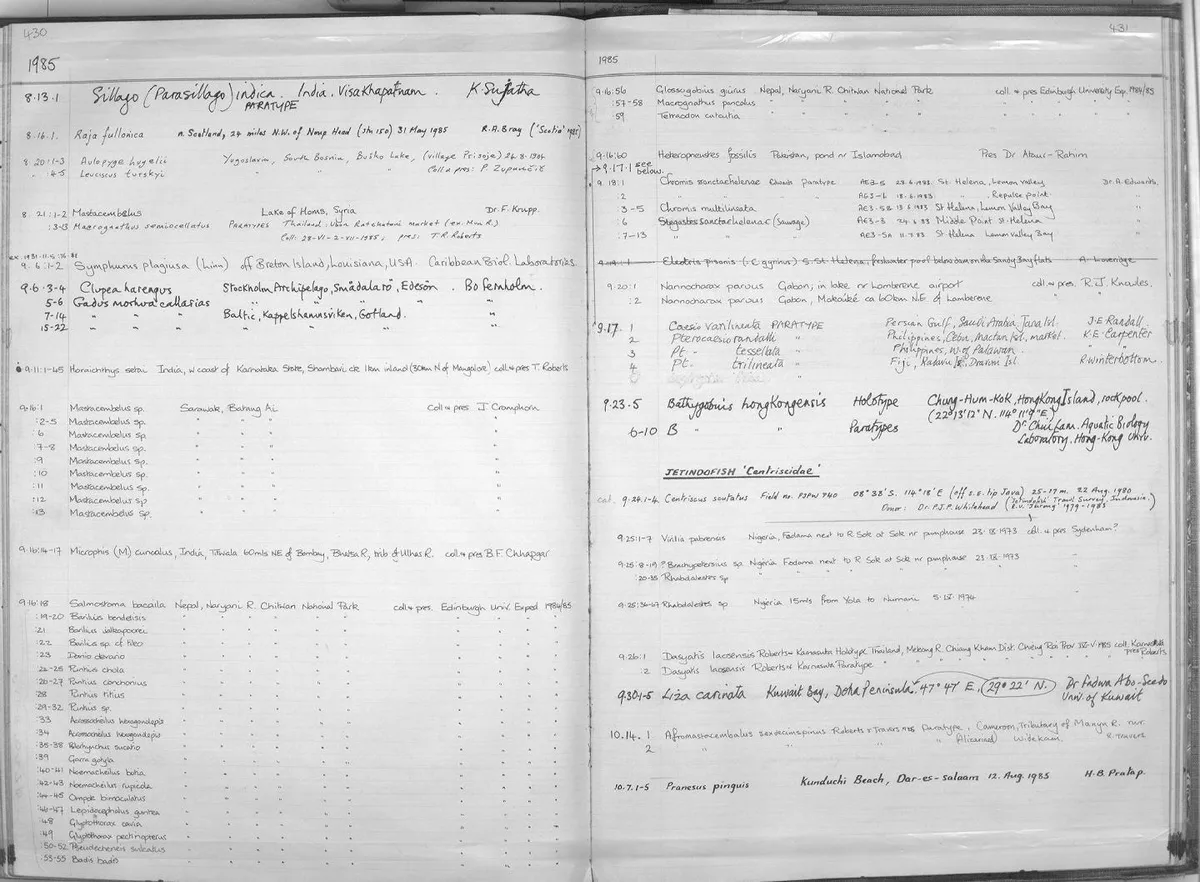 430
1985
8.13.1 Sillago (Parasillago) indica. India. Visakhapatnam. K. Sujatha
PARATYPE
8.16.1. Raja fullonica n. Scotland, 24 miles N.W. of Noup Head (stn 150) 31 May 1985 R.A. Bray ('Scotia' 1985)
8.20:1-3 Aulopyge hugelii Yugoslavia, South Bosnia, Busko Lake, (village Prisoje) 26.8.1984
" :4-5 Leuciscus turskyi Coll & pres: P. Zupančič
8.21:1-2 Mastacembelus Lake of Homs, Syria Dr. F. Krupp.
:3-13 Macrognathus semiocellatus PARATYPES Thailand: Ubon Ratchatani market (ex. Mun R.)
Coll: 28-VI-3-VII-1985; pres: T.R. Roberts
9.6:1-2 Symphurus plagiusa (Linn) off Breton Island, Louisiana, USA. Caribbean Biol. Laboratories
9.6:3-4 Clupea harengus Stockholm Archipelago, Smådalarö, Edesön. Bo Fernholm.
5-6 Gadus morhua callarias " " " " "
7-14 " " " Baltic, Kappelshamnsviken, Gotland. "
15-22 " " " " " " "
9:11:1-45 Horaichthys setai India, W coast of Karnataka State, Shambavi ck 1km inland (30km N of Mangalore) coll & pres T. Roberts
9:16:1 Mastacembelus sp. Sarawak, Batang Ai coll & pres J Cramphorn
:2-5 Mastacembelus sp. " " " "
:6 Mastacembelus sp. " " " "
:7-8 Mastacembelus sp. " " " "
:9 Mastacembelus sp. " " " "
:10 Mastacembelus sp. " " " "
:11 Mastacembelus sp. " " " "
:12 Mastacembelus sp " " " "
:13 Mastacembelus sp. " " " "
9:16:14-17 Microphis (M) cuncalus, India, Titwala 60mls NE of Bombay, Bhatsa R, trib of Ulhas R. coll & pres B.F. Chhapgar
9:16:18 Salmostoma bacaila Nepal, Naryani R. Chitwan National Park coll & pres. Edinburgh Univ. Exped 1984/85
:19-20 Barilius bendelisis " " " " " " " " "
:21 Barilius " " " " " " " " "
:22 Barilius sp. cf tileo " " " " " " " " "
:23 Danio devario " " " " " " " " "
:24-25 Puntius chola " " " " " " " " "
:26-27 Puntius conchonius " " " " " " " " "
:28 Puntius titius " " " " " " " " "
:29-32 Puntius sp. " " " " " " " " "
:33 Acrossocheilus hexagonolepis " " " " " " " " "
:34 hexagonolepis " " " " " " " " "
:35-38 Rhynchus sucatio " " " " " " " " "
:39 Garra gotyla " " " " " " " " "
:40-41 Noemacheilus botia " " " " " " " " "
:42-43 Noemacheilus rupicola " " " " " " " " "
:44-45 Ompok bimaculatus " " " " " " " " "
:46-47 Lepidocephalus guntea " " " " " " " " "
:48 Glyptothorax cavia " " " " " " " " "
:49 Glyptothorax pectinopterus " " " " " " " " "
:50-52 Pseudecheneis sulcatus " " " " " " " " "
:53-55 Badis badis " " " " " " " " "
431
1985
9:16:56 Glossogobius giuris Nepal, Naryani R. Chitwan National Park coll. & pres Edinburgh University Exp. 1984/85
:57-58 Macrognathus pancalus " " " " " " " " "
59 Tetraodon cutcutia " " " " " " " " "
9:16:60 Heteropneustes fossilis Pakistan, pond nr Islamabad Pres Dr Ataur-Rahim
→9.17.1 see below.
9.18:1 Chromis sanctaehelenae Edwards paratype AE3-5 23.6.1983. St. Helena, Lemon Valley Dr. A. Edwards.
:2 " " " " AE3-6 18.6.1983. " Repulse point. "
3-5 Chromis multilineata AE3-5B 13.6.1983 St Helena, Lemon Valley Bay "
6 Stegastes sanctaehelenae (Sauvage) AE3-3 24.6.83 Middle Point St. Helena "
7-13 " " " AE3-5A 11.7.83 St Helena Lemon Valley Bay. "
9.19:1 Electris pisonis (=E gyrinus) S. St. Helena, freshwater pool below dam on the Sandy Bay flats A. Loveridge
9.20:1 Nannocharax parvus Gabon; in lake nr Lambarene airport coll. & pres. R.J. Knowles.
:2 Nannocharax parvus Gabon, Makouké ca 60km NE of Lambarene " "
9.17 1 Caesio varilineata PARATYPE Persian Gulf, Saudi Arabia, Jana Isl. J.E Randall.
2 Pterocaesio randalli " Philippines, Cebu, Mactan Isl, market. K.E. Carpenter
3 Pt. " tessellata " Philippines, W. of Palawan. " "
4 Pt. " trilineata " Fiji, Kadavu Is, Dravuni Isl. R. Winterbottom.
9.23.5 Bathygobius hongkongensis Holotype Chung-Hum-Kok, Hong Kong Island, rock pool.
(22°13'12"N. 114°11'9"E)
6-10 B " " Paratypes Dr Chui Lam. Aquatic Biology
Laboratory. Hong-Kong Univ.
JETINDOFISH 'Centriscidae'
cat. 9.24.1-4. Centriscus scutatus Field no. PJPW 740 08°38'S. 114°18'E (off S.E. tip Java) 25-17 m. 22 Aug. 1980
Donor: Dr. P.J.P. Whitehead (Jetindofish Trawl Survey, Indonesia. R.V. 'Jurong' 1979-1983)
9:25:1-7 Virilia pabrensis Nigeria, Fadama next to R Sok at Sok nr pumphouse 23.IX.1973 coll. & pres Sydenham?
9:25:8-19 ? Brachypetersius sp Nigeria Fadama next to R Sok at Sok nr pumphouse 23.IX.1973 "
:20-35 Rhabdalestes sp " " " " "
9:25:36-67 Rhabdalestes sp Nigeria 15mls from Yola to Numani 5.IX.1974 "
9:26:1 Dasyatis laosensis Roberts & Karnasuta Holotype Thailand, Mekong R. Chiang Khom Dist. Chieng Rai Prov IV-V.1985 coll. Karnasuta
pres Roberts
:2 Dasyatis laosensis Roberts & Karnasuta Paratype " " " " " "
9.30:1-5 Liza carinata Kuwait Bay, Doha Peninsula 47° 47' E, 29° 22' N. Dr Fadwa Abo-Seedo
Univ. of Kuwait
10.14. 1 Afromastacembelus sexdecimspinus Roberts & Travers 1986 Paratype, Cameroon, Tributary of Manyu R. nur.
2 " " " " Widekum. R. Travers
10.7.1-5 Pranesus pinguis Kunduchi Beach, Dar-es-salaam 12. Aug. 1985 H.B. Pratap.